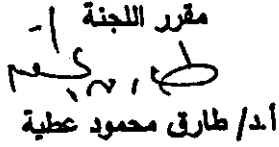 مقرر اللجنة
أ.د/ طارق محمود عطية